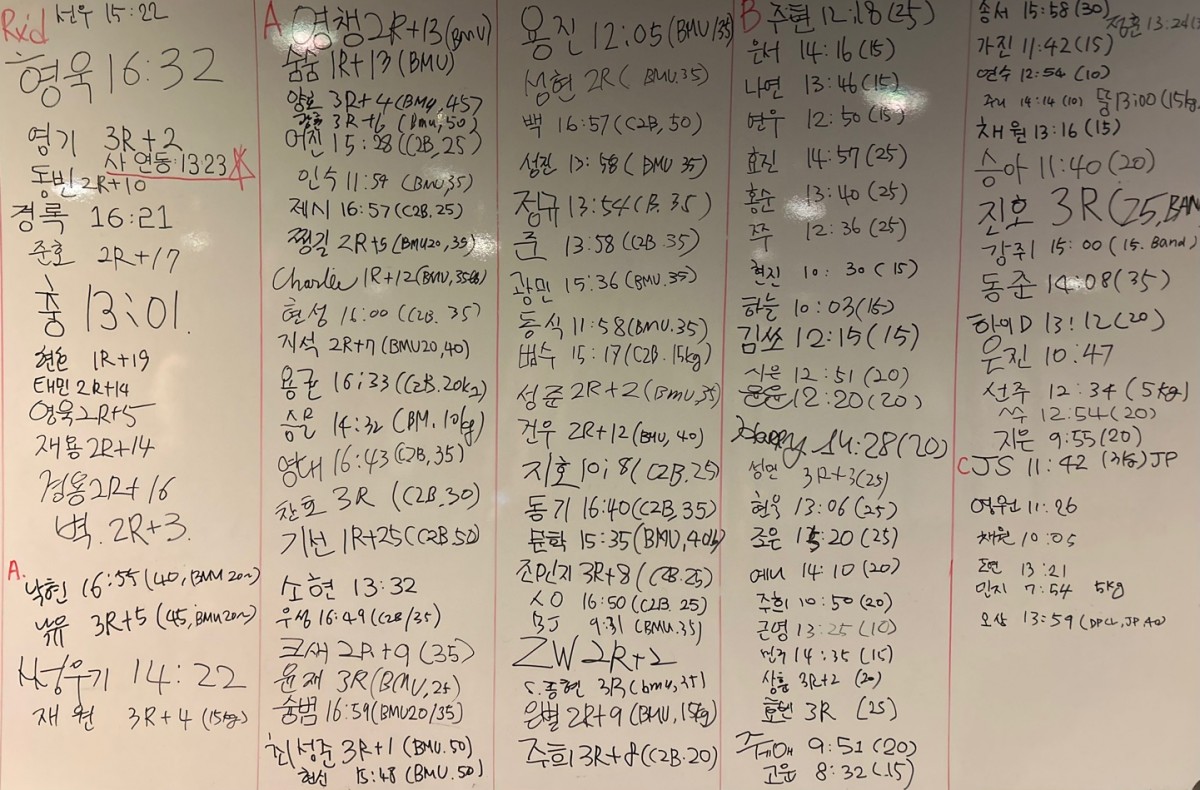 Rxd
선우 15:22
형욱 16:32
영기 3R+2
사 연동 13:23
동빈 2R+10
경록 16:21
준호 2R+17
충 13:01.
현손 1R+19
태민 2R+14
영욱 2R+5
재용 2R+14
정용 2R+16
벽. 2R+3.
A.
낙현 16:55 (40, BMU 20~)
3R+5 (45, BMU 20~)
성우기 14:22
재원 3R+4 (15kg)
A
영챙 2R+13 (BMU)
숨숨 1R+13 (BMU)
양호 3R+4 (BMU, 45)
3R+6 (Bmu, 50)
어진 15:28 (C2B, 25)
인수 11:59 (BMU, 35)
제시 16:57 (C2B. 25)
쩡길 2R+5 (BMU20, 35)
Charlie 1R+12 (BMU, 35lb)
현성 16:00 (C2B. 35)
지석 2R+7 (BMU20, 40)
용균 16:33 (C2B. 20kg)
승문 14:32 (BM. 10kg)
영대 16:43 (C2B, 35)
찬호 3R (C2B. 30)
기선 1R+25 (C2B. 50)
소현 13:32
우성 16:49 (C2B/35)
크새 2R+9 (35)
윤재 3R (BMU, 25)
숨범 16:59 (BMU20/35)
최성준 3R+1 (BMU. 50)
현선 15:48 (BMU. 50)
용진 12:05 (BMU/35)
성현 2R (BMU. 35)
백 16:57 (C2B, 50)
성진 13:58 (BMU 35)
정규 13:54 (B. 35)
준 13:58 (C2B. 35)
광민 15:36 (BMU. 35)
동식 11:58 (BMU. 35)
범수 15:17 (C2B. 15kg)
성준 2R+2 (BMU, 35)
건우 2R+12 (BMU, 40)
지호 10:8 (C2B. 25)
동기 16:40 (C2B. 35)
문학 15:35 (BMU, 40lb)
조민지 3R+8 (C2B. 25)
ㅅㅇ 16:50 (C2B. 25)
BJ 9:31 (BMU. 35)
ZW 2R+2
S. 종현 3R (bmu, 35)
은별 2R+9 (BMU, 15kg)
주희 3R+8 (C2B. 20)
B
주현 12:18 (25)
은서 14:16 (15)
나연 13:46 (15)
연우 12:50 (15)
효진 14:57 (25)
홍순 13:40 (25)
쭈 12:36 (25)
현진 10:30 (15)
하늘 10:03 (15)
김쏘 12:15 (15)
시은 12:51 (20)
윤윤 12:20 (20)
Happy 14:28 (20)
성민 3R+3 (25)
현욱 13:06 (25)
조은 15:20 (25)
예니 14:10 (20)
주희 10:50 (20)
근영 13:25 (10)
선주 14:35 (15)
상흠 3R+2 (20)
효빈 3R (25)
9:51 (20)
고운 8:32 (15)
송서 15:58 (30)
정훈 13:20
가진 11:42 (15)
연수 12:54 (10)
주니 14:14 (10)
뚬 13:00 (15kg.
채원 13:16 (15)
승아 11:40 (20)
진호 3R (25, BAN
강주1 15:00 (15. Band)
동준 14:08 (35)
하이D 13:12 (20)
은진 10:47
선주 12:34 (5kg)
쓰수 12:54 (20)
지은 9:55 (20)
C
JS 11:42 JP
영원 11:26
채원 10:05
도현 13:21
민지 7:54 5kg
오상 13:59 (DPCL, JP, AD)